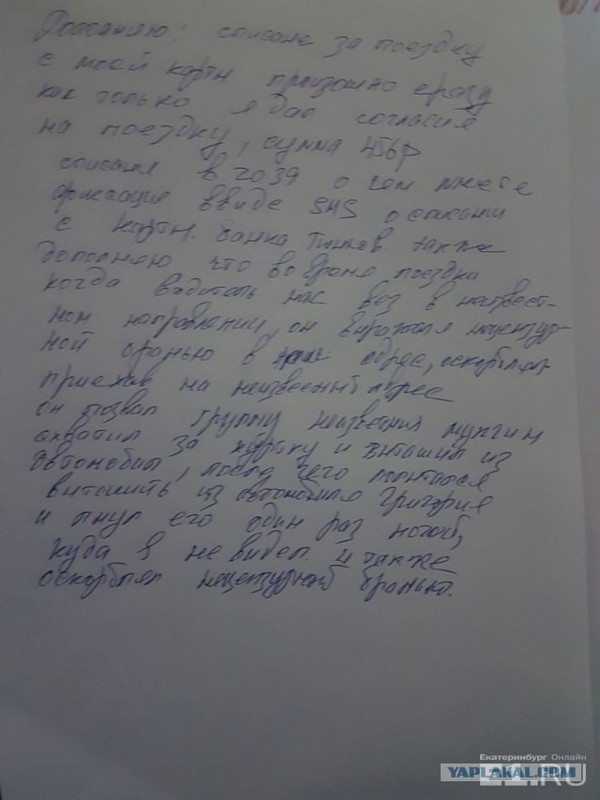 Дополняю: списание за поездку
с моей карты произошло сразу
как только я дал согласия
на поездку, сумма 456р
списали в 20 39 о чем имеете
в виде SMS о списании
с карты банка Тинков. также
дополняю что во время поездки
когда водитель нас вез в неизвест-
ном направлении, он выражался нецензур-
ной бранью в наш адрес, оскорблял
приехав на неизвесный адрес
он позвал группу неизвесных мужчин
схватил за куртку и вытащил из
автомобиля, после чего попытался
вытощить из автомобиля Григория
и пнул его один раз ногой,
куда я не видел и также
оскорблял нецензурной бранью.
Екатеринбург Онлайн
E1.RU
YAPLAKAL.COM